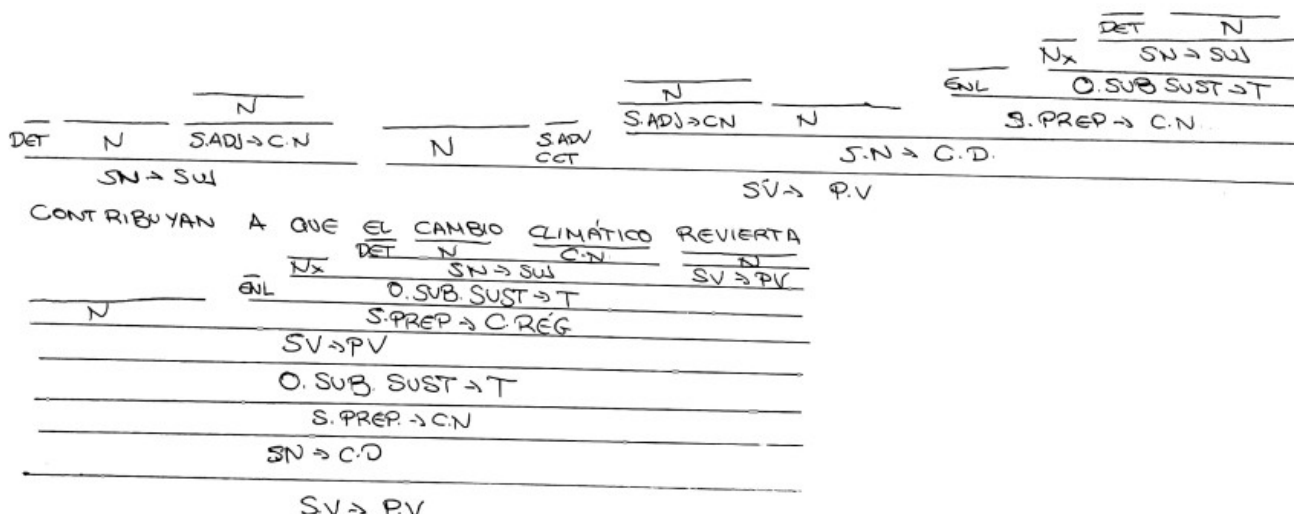 DET N
Nx SN→SUJ
N N ENL O.SUB SUST→T
DET N S.ADJ→C.N N S.ADV S.ADJ→CN N S.PREP→C.N.
CCT S.N→C.D.
SN→SUJ SV→P.V
CONTRIBUYAN A QUE EL CAMBIO CLIMÁTICO REVIERTA
DET N C.N. N
Nx SN→SUJ SV→PV
ENL O.SUB.SUST→T
N S.PREP→C.RÉG
SV→PV
O.SUB.SUST→T
S.PREP.→C.N
SN→C.D
SV→P.V